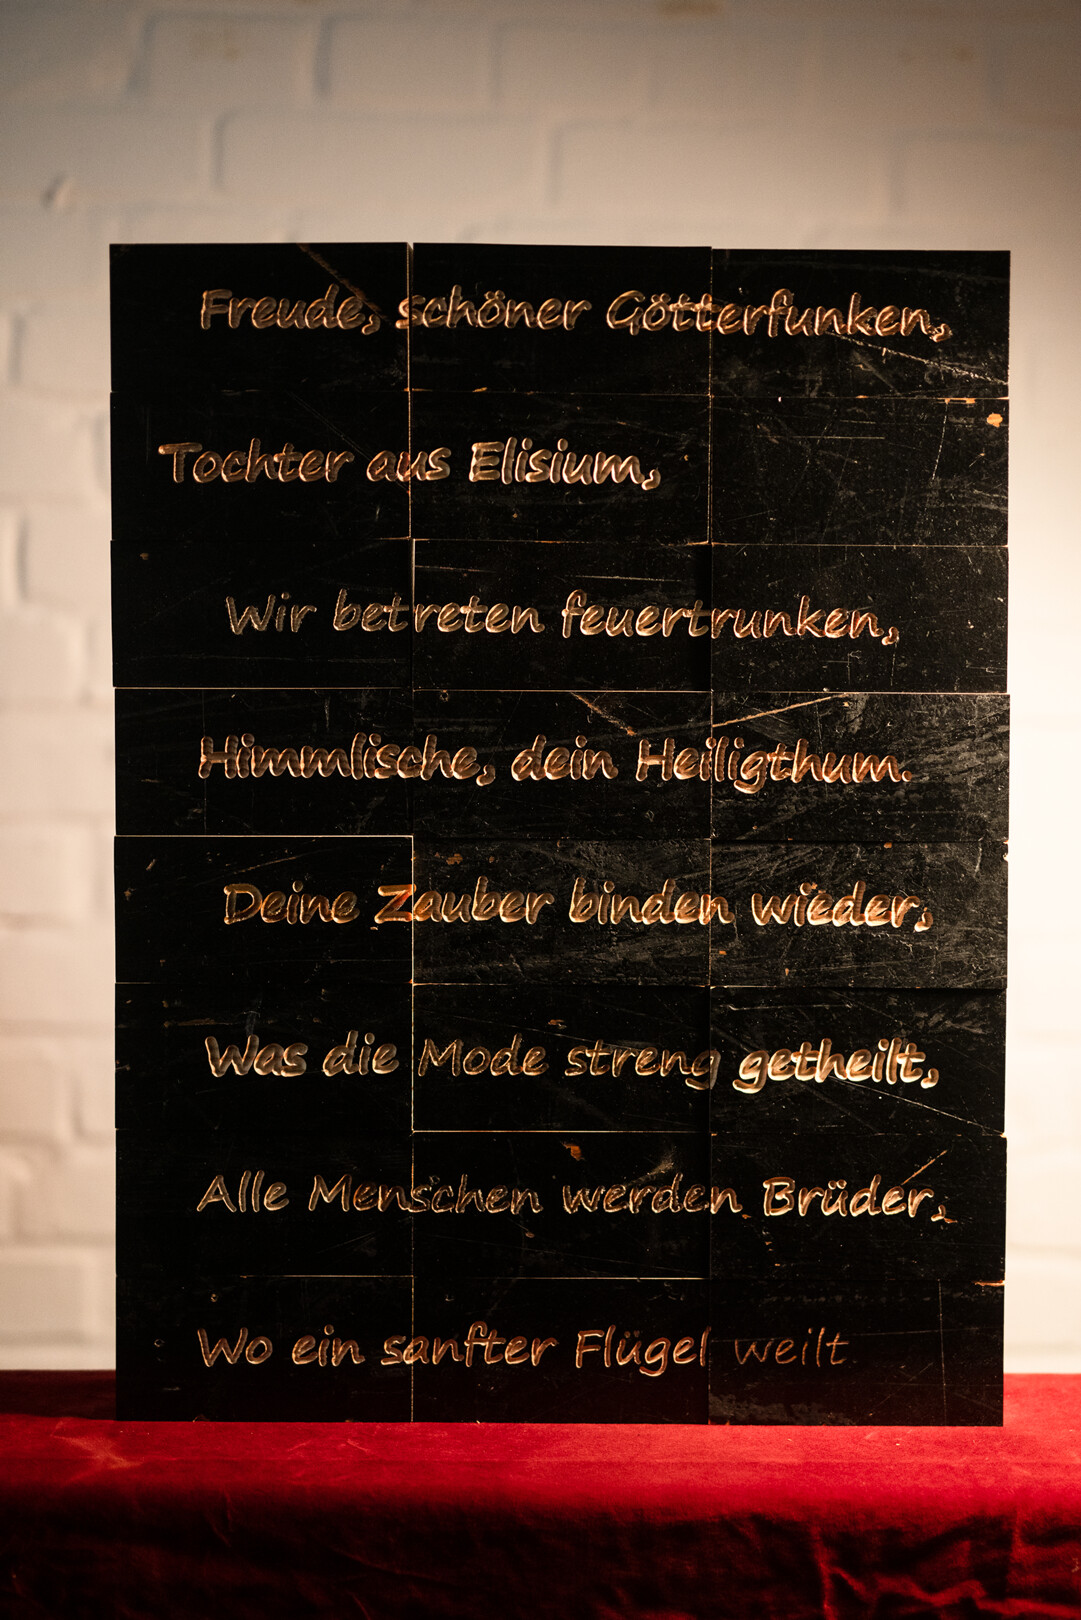 Freude, schöner Götterfunken,
Tochter aus Elisium,
Wir betreten feuertrunken,
Himmlische, dein Heiligthum.
Deine Zauber binden wieder,
Was die Mode streng getheilt,
Alle Menschen werden Brüder,
Wo ein sanfter Flügel weilt